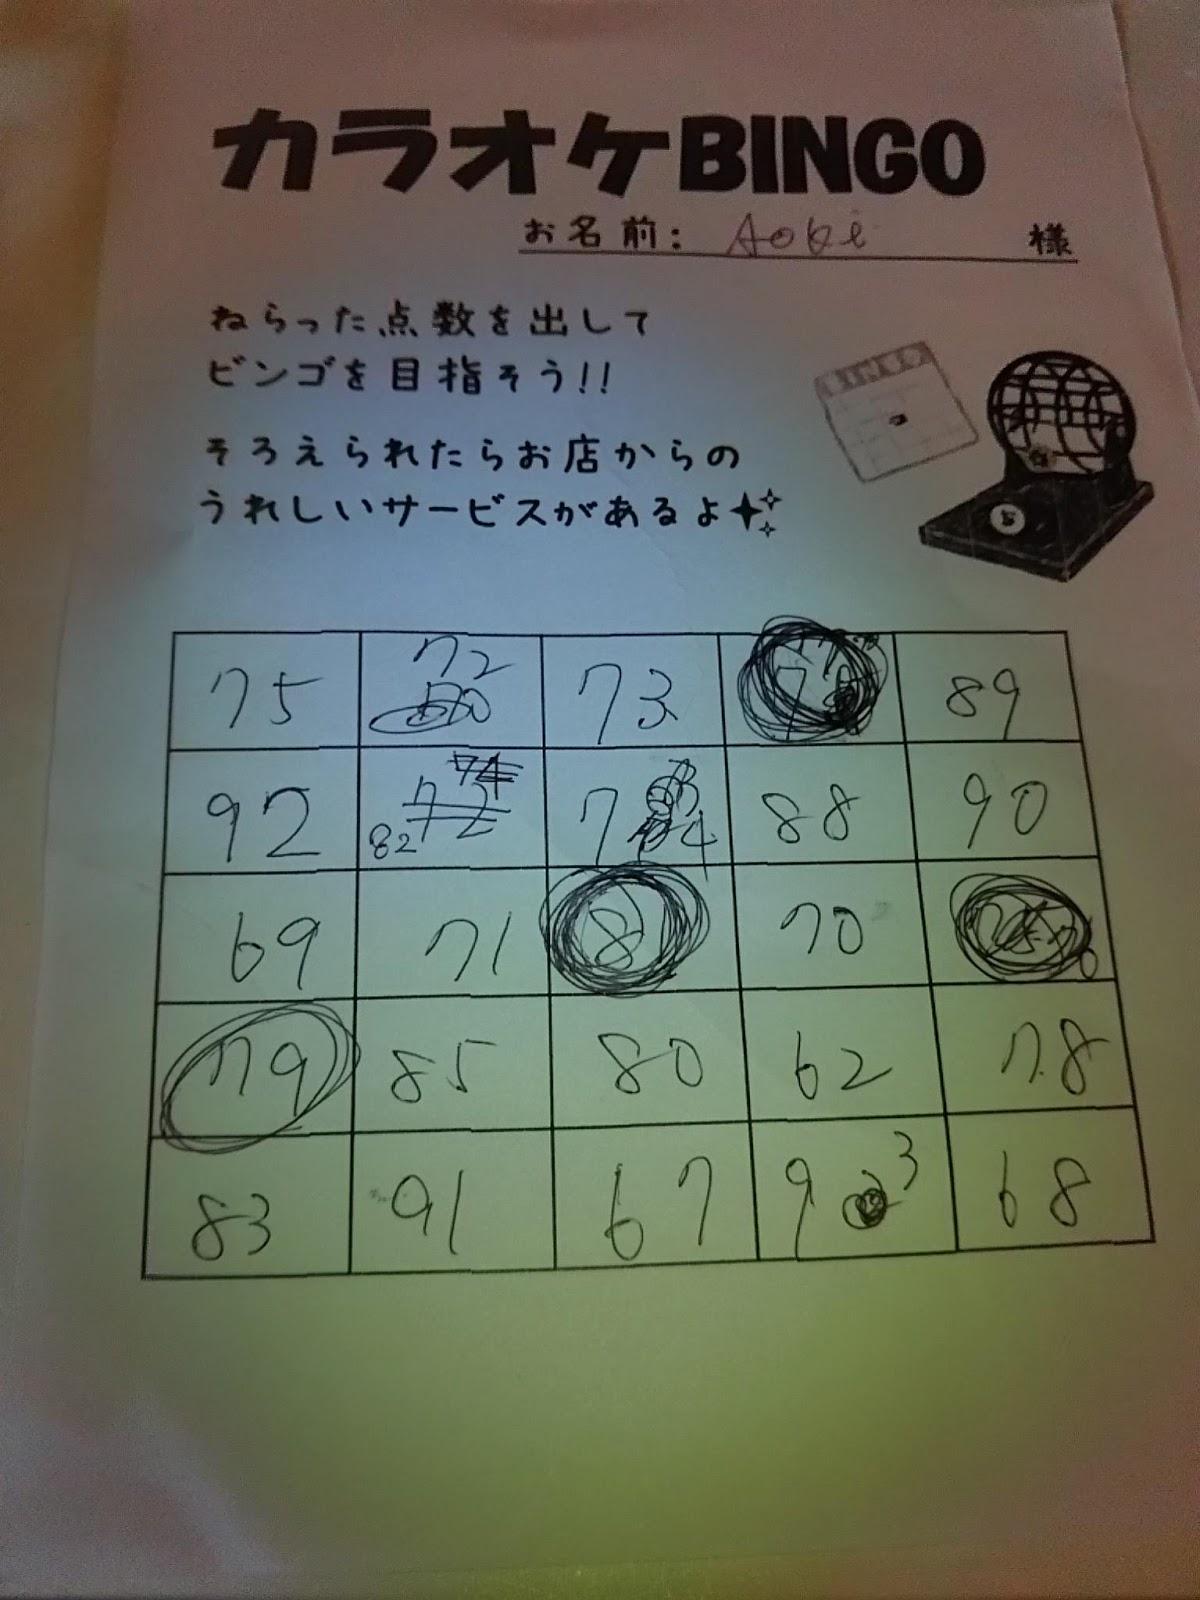 カラオケBINGO
お名前: Aoki 様
ねらった点数を出して
ビンゴを目指そう!!
そろえられたらお店からの
うれしいサービスがあるよ
BINGO
75 72 73 89
92 82 74 88 90
69 71 8 70
79 85 80 62 78
83 91 67 93 68